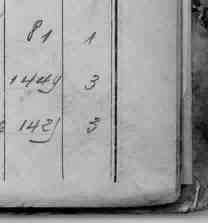 81 1
1449 3
1429 3